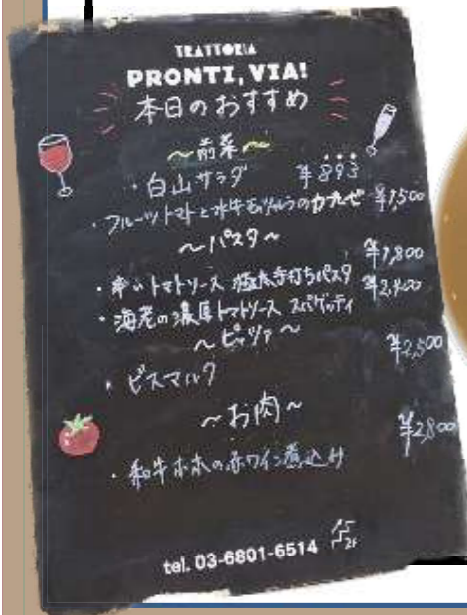 TRATTORIA
PRONTI, VIA!
本日のおすすめ
～前菜～
・白山サラダ ¥893
・フルーツトマトと水牛モッツァレラのカプレーゼ ¥1,500
～パスタ～
・辛いトマトソース 極太手打ちパスタ ¥1,800
・海老の濃厚トマトソース スパゲッティ ¥2,400
～ピッツァ～
・ビスマルク ¥2,500
～お肉～
・和牛ホホの赤ワイン煮込み ¥2,800
tel. 03-6801-6514
2F